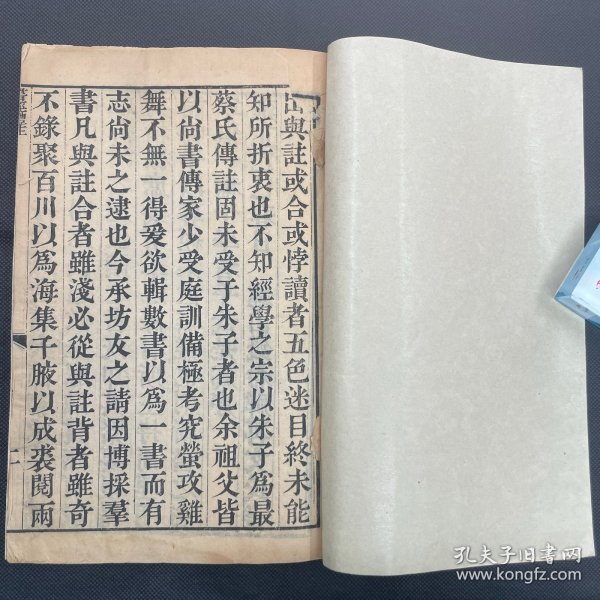 出與註或合或悖讀者五色迷目終未能
知所折衷也不知經學之宗以朱子爲最
蔡氏傳註固未受于朱子者也余祖父皆
以尚書傳家少受庭訓備極考究螢攻雞
舞不無一得爰欲輯數書以爲一書而有
志尚未之逮也今承坊友之請因博採羣
書凡與註合者雖淺必從與註背者雖奇
不錄聚百川以爲海集千腋以成裘閱兩
二
孔夫子旧书网
www.kongfz.com